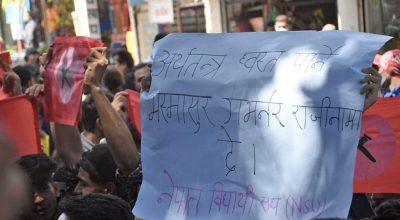 अर्थतन्त्र ध्वस्त पार्ने
भस्मासुर गभर्नर राजीनामा
दे।
नेपाल विद्यार्थी संघ (NSU)